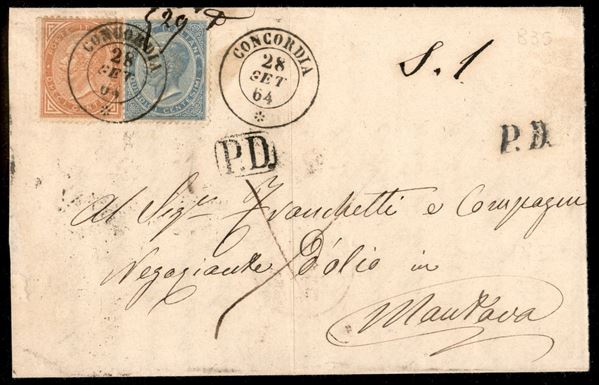 CONCORDIA
28
SET
64
CONCORDIA
28
SET
64
S. 1
835
P.D.
P.D.
Al Sigr Franchetti e Compagni
Negoziante D'olio in
Mantova